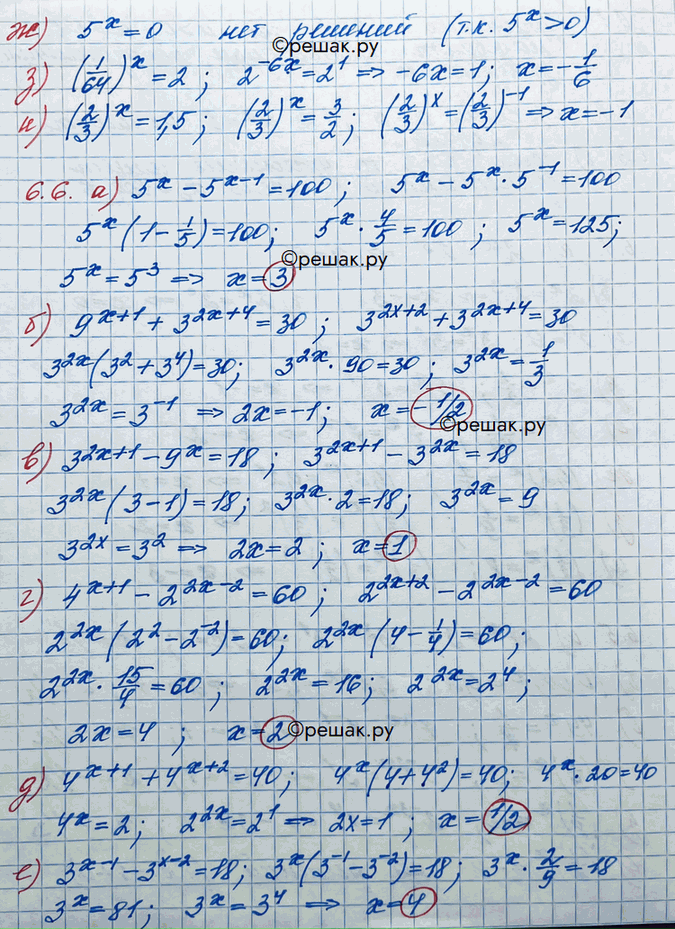 ж) 5^x = 0 нет решений (т.к. 5^x > 0)
©решак.ру
з) (1/64)^x = 2; 2^(-6x) = 2^1 => -6x = 1; x = -1/6
и) (2/3)^x = 1,5; (2/3)^x = 3/2; (2/3)^x = (2/3)^(-1) => x = -1
6.6. а) 5^x - 5^(x-1) = 100; 5^x - 5^x · 5^(-1) = 100
5^x (1 - 1/5) = 100; 5^x · 4/5 = 100; 5^x = 125;
©решак.ру
5^x = 5^3 => x = 3
б) 9^(x+1) + 3^(2x+4) = 30; 3^(2x+2) + 3^(2x+4) = 30
3^(2x) (3^2 + 3^4) = 30; 3^(2x) · 90 = 30; 3^(2x) = 1/3
3^(2x) = 3^(-1) => 2x = -1; x = -1/2
©решак.ру
в) 3^(2x+1) - 9^x = 18; 3^(2x+1) - 3^(2x) = 18
3^(2x) (3 - 1) = 18; 3^(2x) · 2 = 18; 3^(2x) = 9
3^(2x) = 3^2 => 2x = 2; x = 1
г) 4^(x+1) - 2^(2x-2) = 60; 2^(2x+2) - 2^(2x-2) = 60
2^(2x) (2^2 - 2^(-2)) = 60; 2^(2x) (4 - 1/4) = 60;
2^(2x) · 15/4 = 60; 2^(2x) = 16; 2^(2x) = 2^4;
2x = 4; x = 2
©решак.ру
д) 4^(x+1) + 4^(x+2) = 40; 4^x (4 + 4^2) = 40; 4^x · 20 = 40
4^x = 2; 2^(2x) = 2^1 => 2x = 1; x = 1/2
е) 3^(x-1) - 3^(x-2) = 18; 3^x (3^(-1) - 3^(-2)) = 18; 3^x · 2/9 = 18
3^x = 81; 3^x = 3^4 => x = 4